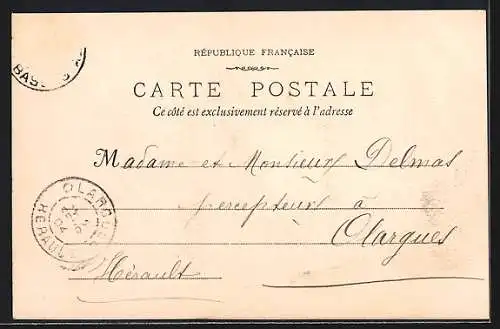 RÉPUBLIQUE FRANÇAISE
CARTE POSTALE
Ce côté est exclusivement réservé à l'adresse
Madame et Monsieur Delmas
percepteur à
Olargues
Hérault
OLARGUES
HERAULT
04